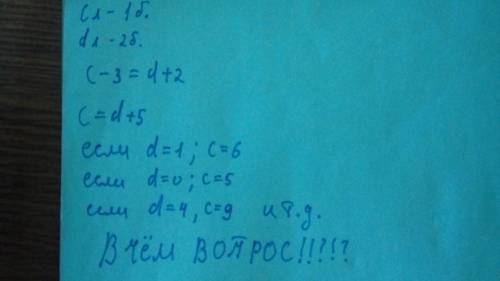 Сл - 1б.
dл - 2б.
c-3=d+2
c=d+5
если d=1; c=6
если d=0; c=5
если d=4, c=9 и т.д.
В ЧЁМ ВОПРОС!!?!?